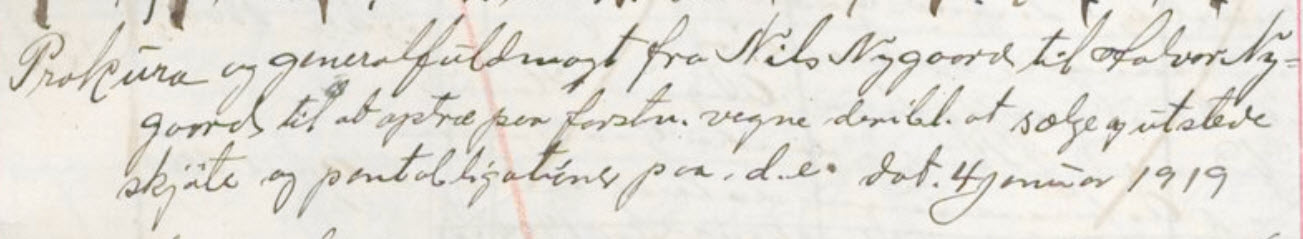 Prokura og generalfuldmagt fra Nils Nygaard til Halvor Ny-
gaard til at optræ paa forstn. vegne deribl. at sælge og utstede
skjöte og pantobligationer paa d. e. dat. 4 januar 1919